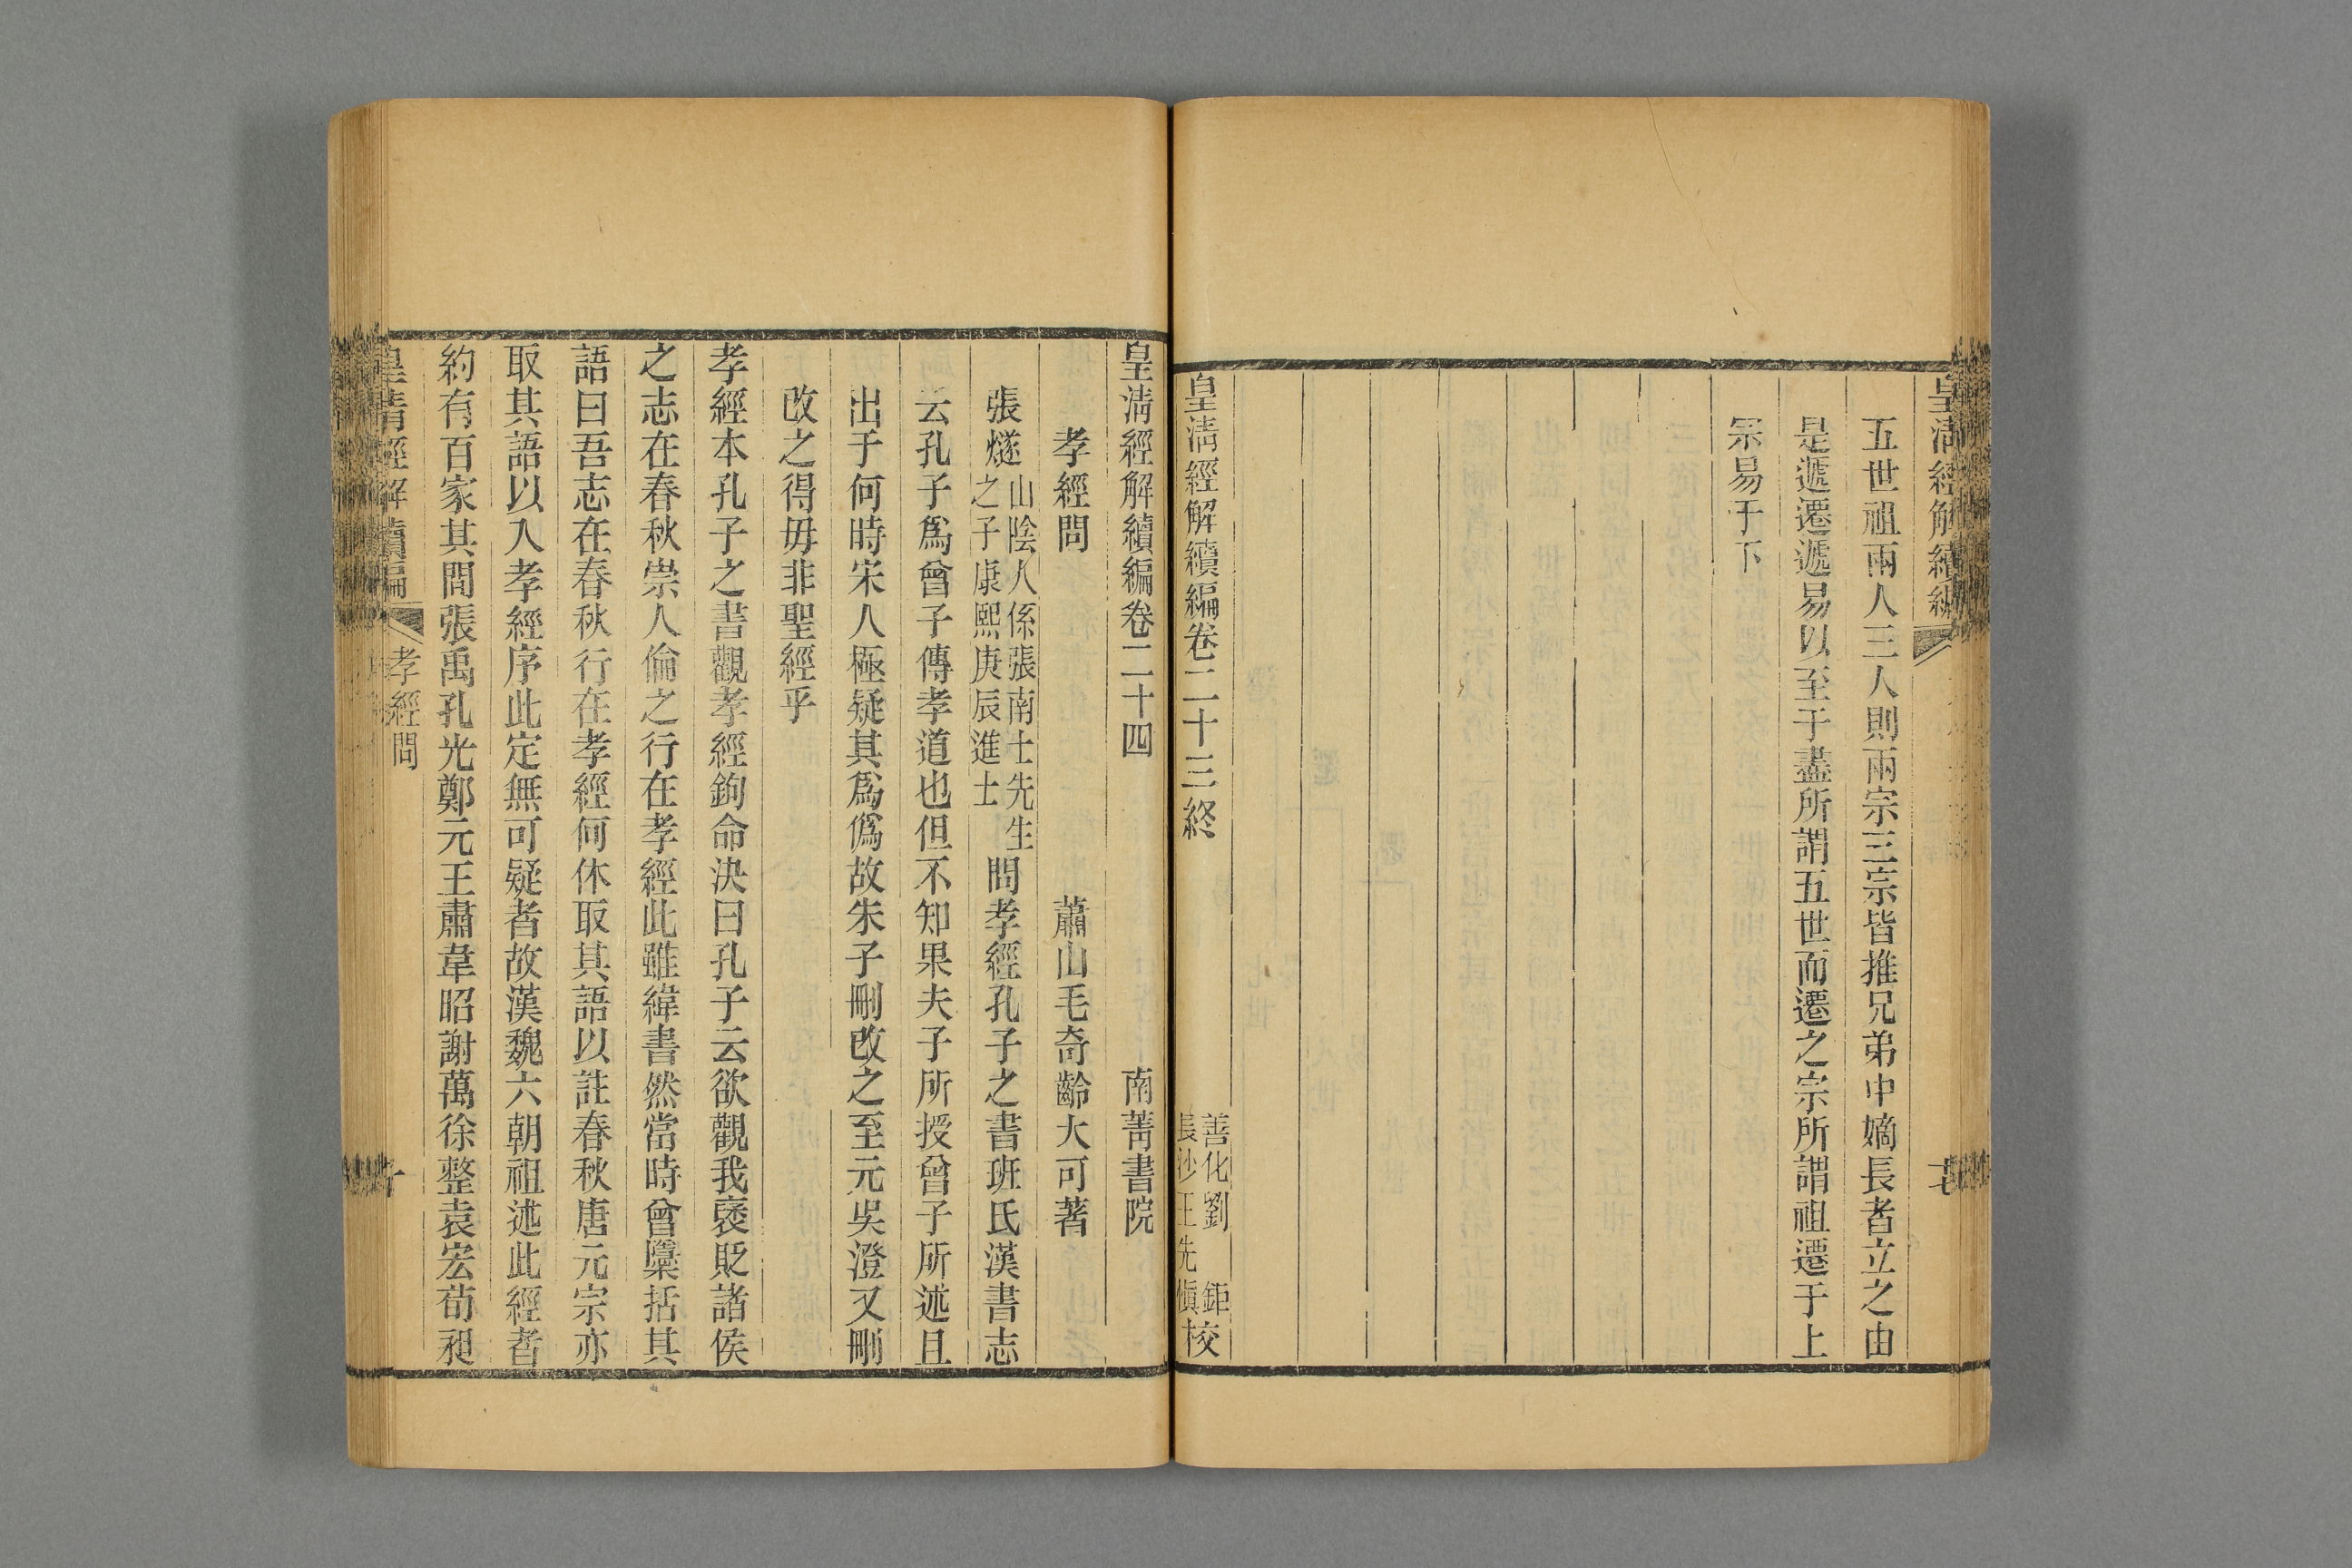 皇淸經解續編
五世祖兩人三人則兩宗三宗皆推兄弟中嫡長者立之由
是遞遷遞易以至于盡所謂五世而遷之宗所謂祖遷于上
宗易于下
皇淸經解續編卷二十三終
善化劉 鉅
長沙王先愼校
皇淸經解續編卷二十四 南菁書院
孝經問 蕭山毛奇齡大可著
張燧山陰人係張南士先生之子康熙庚辰進士問孝經孔子之書班氏漢書志
云孔子爲曾子傳孝道也但不知果夫子所授曾子所述且
出于何時宋人極疑其爲僞故朱子刪改之至元吳澄又刪
改之得毋非聖經乎
孝經本孔子之書觀孝經鉤命決曰孔子云欲觀我褒貶諸侯
之志在春秋崇人倫之行在孝經此雖緯書然當時曾檃括其
語曰吾志在春秋行在孝經何休取其語以註春秋唐元宗亦
取其語以入孝經序此定無可疑者故漢魏六朝祖述此經者
約有百家其間張禹孔光鄭元王肅韋昭謝萬徐整袁宏荀昶
皇淸經解續編 孝經問